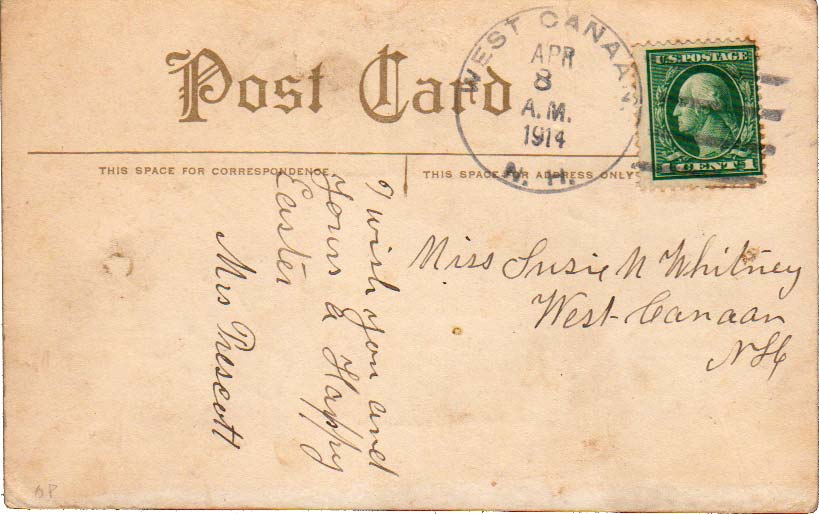 Post Card
WEST CANAAN
APR
8
A.M.
1914
N. H.
U.S. POSTAGE
1 CENT 1
THIS SPACE FOR CORRESPONDENCE
THIS SPACE FOR ADDRESS ONLY
I wish you and
yours a Happy
Easter
Mrs Prescott
Miss Susie N Whitney
West Canaan
NH